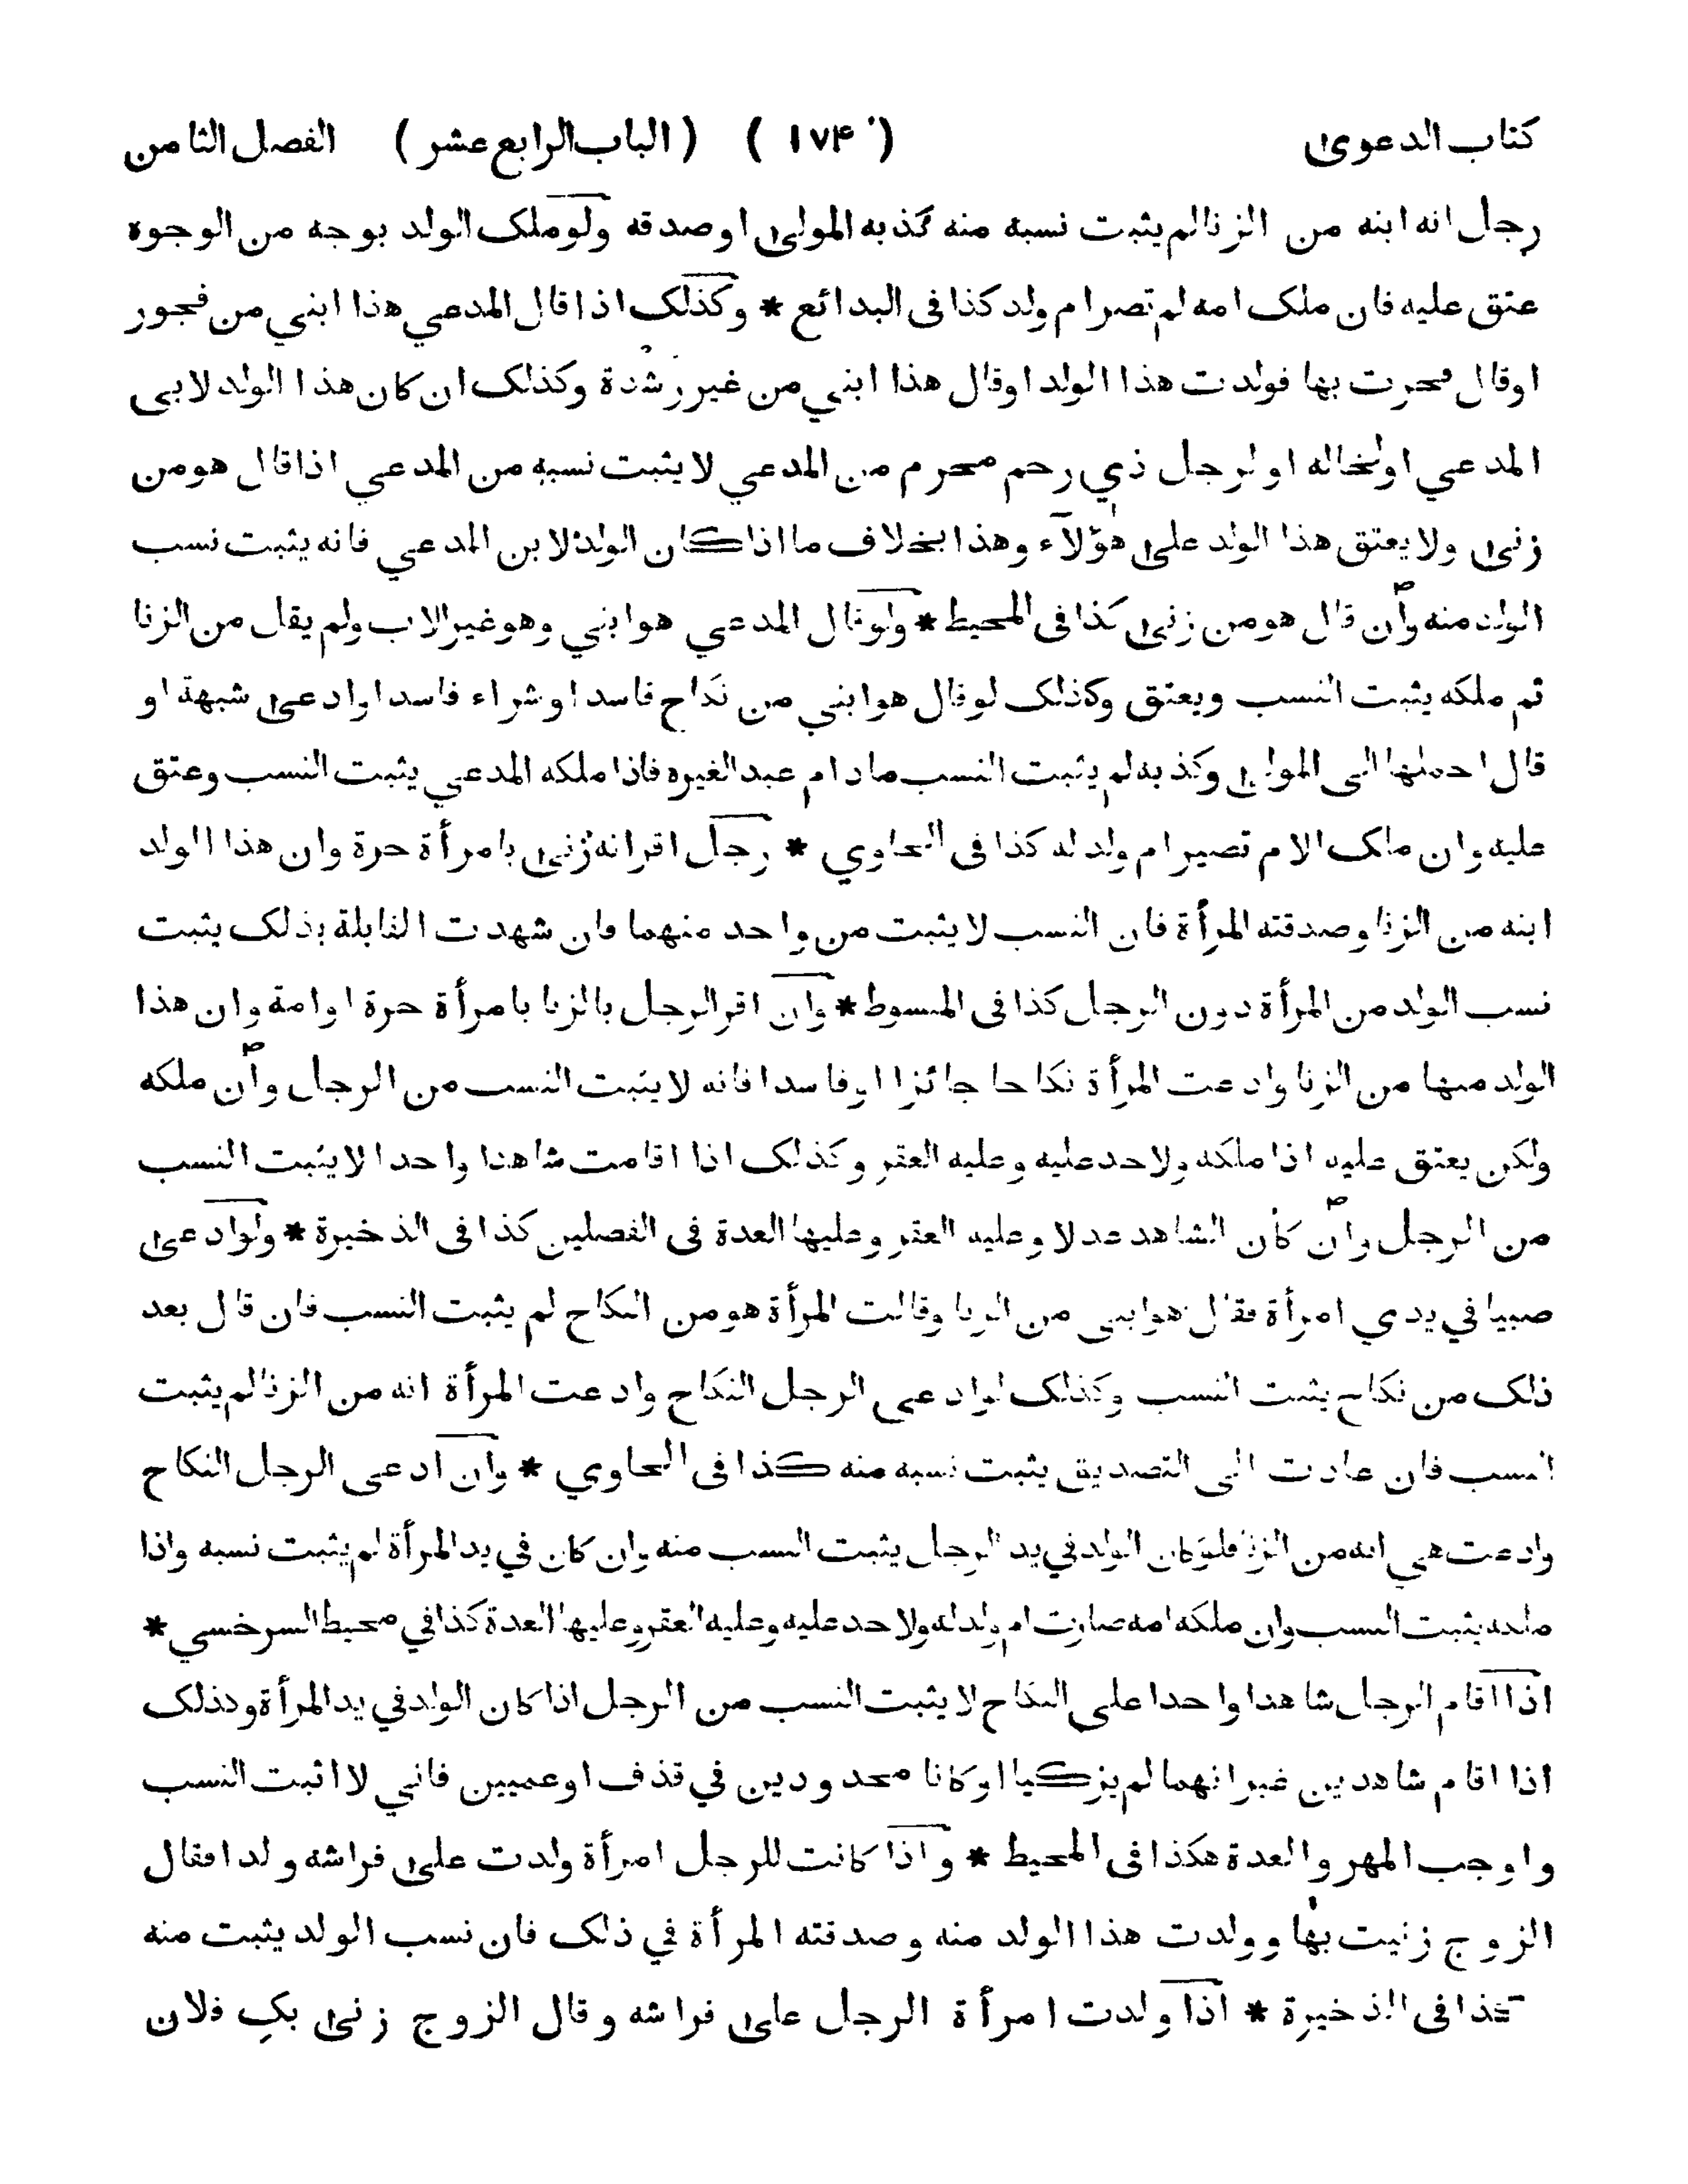 كتاب الدعوى ( ١٧۴ ) ( الباب الرابع عشر ) الفصل الثامن
رجل انه ابنه من الزنا لم يثبت نسبه منه كذبه المولى او صدقه ولو ملك الولد بوجه من الوجوه
عتق عليه فان ملك امه لم تصر ام ولد كذا فى البدائع * وكذلك اذا قال المدعي هذا ابني من فجور
او قال فجرت بها فولدت هذا الولد او قال هذا ابني من غير رشدة وكذلك ان كان هذا الولد لابى
المدعي او لخاله او لرجل ذي رحم محرم من المدعي لا يثبت نسبه من المدعي اذا قال هو من
زنى ولا يعتق هذا الولد على هؤلآء وهذا بخلاف ما اذا كان الولد لابن المدعي فانه يثبت نسب
الولد منه وان قال هو من زنى كذا فى المحيط * ولو قال المدعي هو ابني وهو غير الاب ولم يقل من الزنا
ثم ملكه يثبت النسب ويعتق وكذلك لو قال هو ابني من نكاح فاسد او شراء فاسد او ادعى شبهة او
قال احلها الى المولى وكذبه لم يثبت النسب ما دام عبد الغيره فاذا ملكه المدعي يثبت النسب وعتق
عليه وان ملك الام تصير ام ولد له كذا فى الحاوي * رجل اقر انه زنى بامرأة حرة وان هذا الولد
ابنه من الزنا وصدقته المرأة فان النسب لا يثبت من واحد منهما فان شهدت القابلة بذلك يثبت
نسب الولد من المرأة دون الرجل كذا فى المبسوط * وان اقر الرجل بالزنا بامرأة حرة او امة وان هذا
الولد منها من الزنا وادعت المرأة نكاحا جائزا او فاسدا فانه لا يثبت النسب من الرجل وان ملكه
ولكن يعتق عليه اذا ملكه ولا حد عليه وعليه العقر وكذلك اذا اقامت شاهدا واحدا لا يثبت النسب
من الرجل وان كان الشاهد عدلا وعليه العقر وعليها العدة فى الفصلين كذا فى الذخيرة * ولو ادعى
صبيا في يدي امرأة فقال هو ابنى من الزنا وقالت المرأة هو من النكاح لم يثبت النسب فان قال بعد
ذلك من نكاح يثبت النسب وكذلك لو ادعى الرجل النكاح وادعت المرأة انه من الزنا لم يثبت
النسب فان عادت الى التصديق يثبت نسبه منه كذا فى الحاوي * وان ادعى الرجل النكاح
وادعت هي انه من الزنا فلو كان الولد في يد الرجل يثبت النسب منه وان كان في يد المرأة لم يثبت نسبه واذا
ملكه يثبت النسب وان ملكه امه صارت ام ولد له ولا حد عليه وعليه العقر وعليها العدة كذا في محيط السرخسي *
اذا اقام الرجل شاهدا واحدا على النكاح لا يثبت النسب من الرجل اذا كان الولد في يد المرأة وكذلك
اذا اقام شاهدين غير انهما لم يزكيا او كانا محدودين في قذف او عميين فاني لا اثبت النسب
واوجب المهر والعدة هكذا فى المحيط * واذا كانت للرجل امرأة ولدت على فراشه ولدا فقال
الزوج زنيت بها وولدت هذا الولد منه وصدقته المرأة في ذلك فان نسب الولد يثبت منه
كذا فى الذخيرة * اذا ولدت امرأة الرجل على فراشه وقال الزوج زنى بك فلان